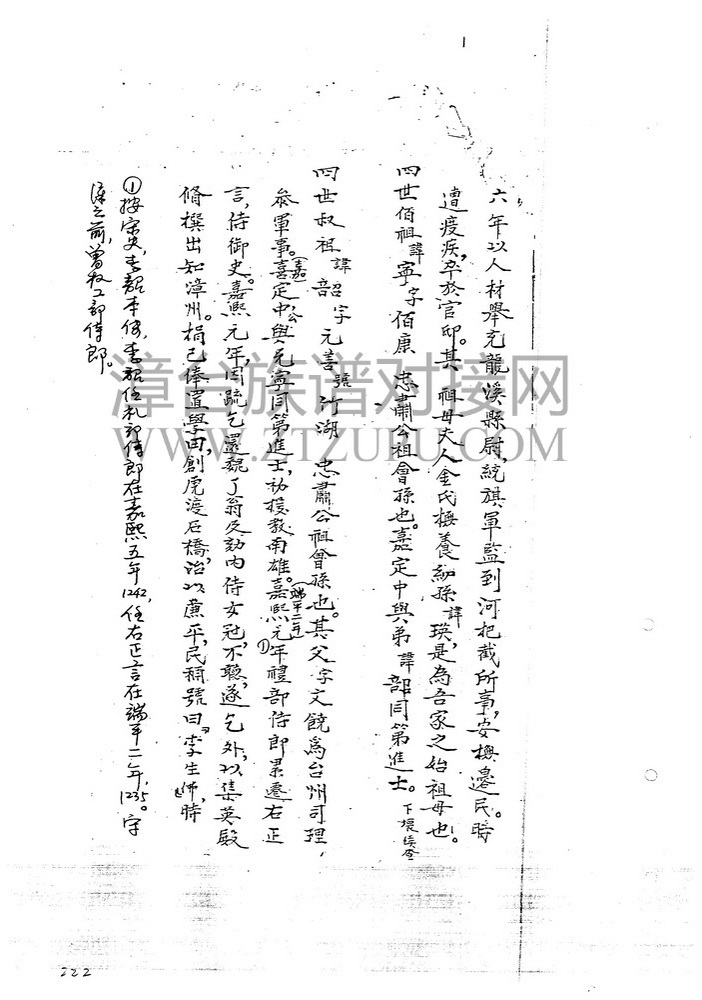 六年以人材舉充龍溪縣尉,統旗軍監到河把截所事,安撫邊民。時
遭疫疾,卒於官邸。其祖母夫人金氏撫養幼孫諱瑛,是為吾家之始祖母也。
四世伯祖諱寧字伯康忠肅公祖會孫也。嘉定中與弟諱韶同第進士。下壞
四世叔祖諱韶字元善號竹湖忠肅公祖會孫也。其父字文饒為台州司理,
參軍事。嘉定中與兄寧同第進士,初授教南雄。嘉熙(端平二年)元年①禮部侍郎累遷右正
言,侍御史。嘉熙元年,因疏乞還魏了翁及劾內侍女冠,不聽,遂乞外,以集英殿
脩撰出知漳州。捐己俸置學田,創虎渡石橋,治以廉平,民稱號曰李生佛,時
①按宋史,李韶本傳,李韶任礼部侍郎在嘉熙五年1242,任右正言在端平二年,1235。字
之前,曾
漳台族谱对接网
WWW.ZTZUPU.COM
222